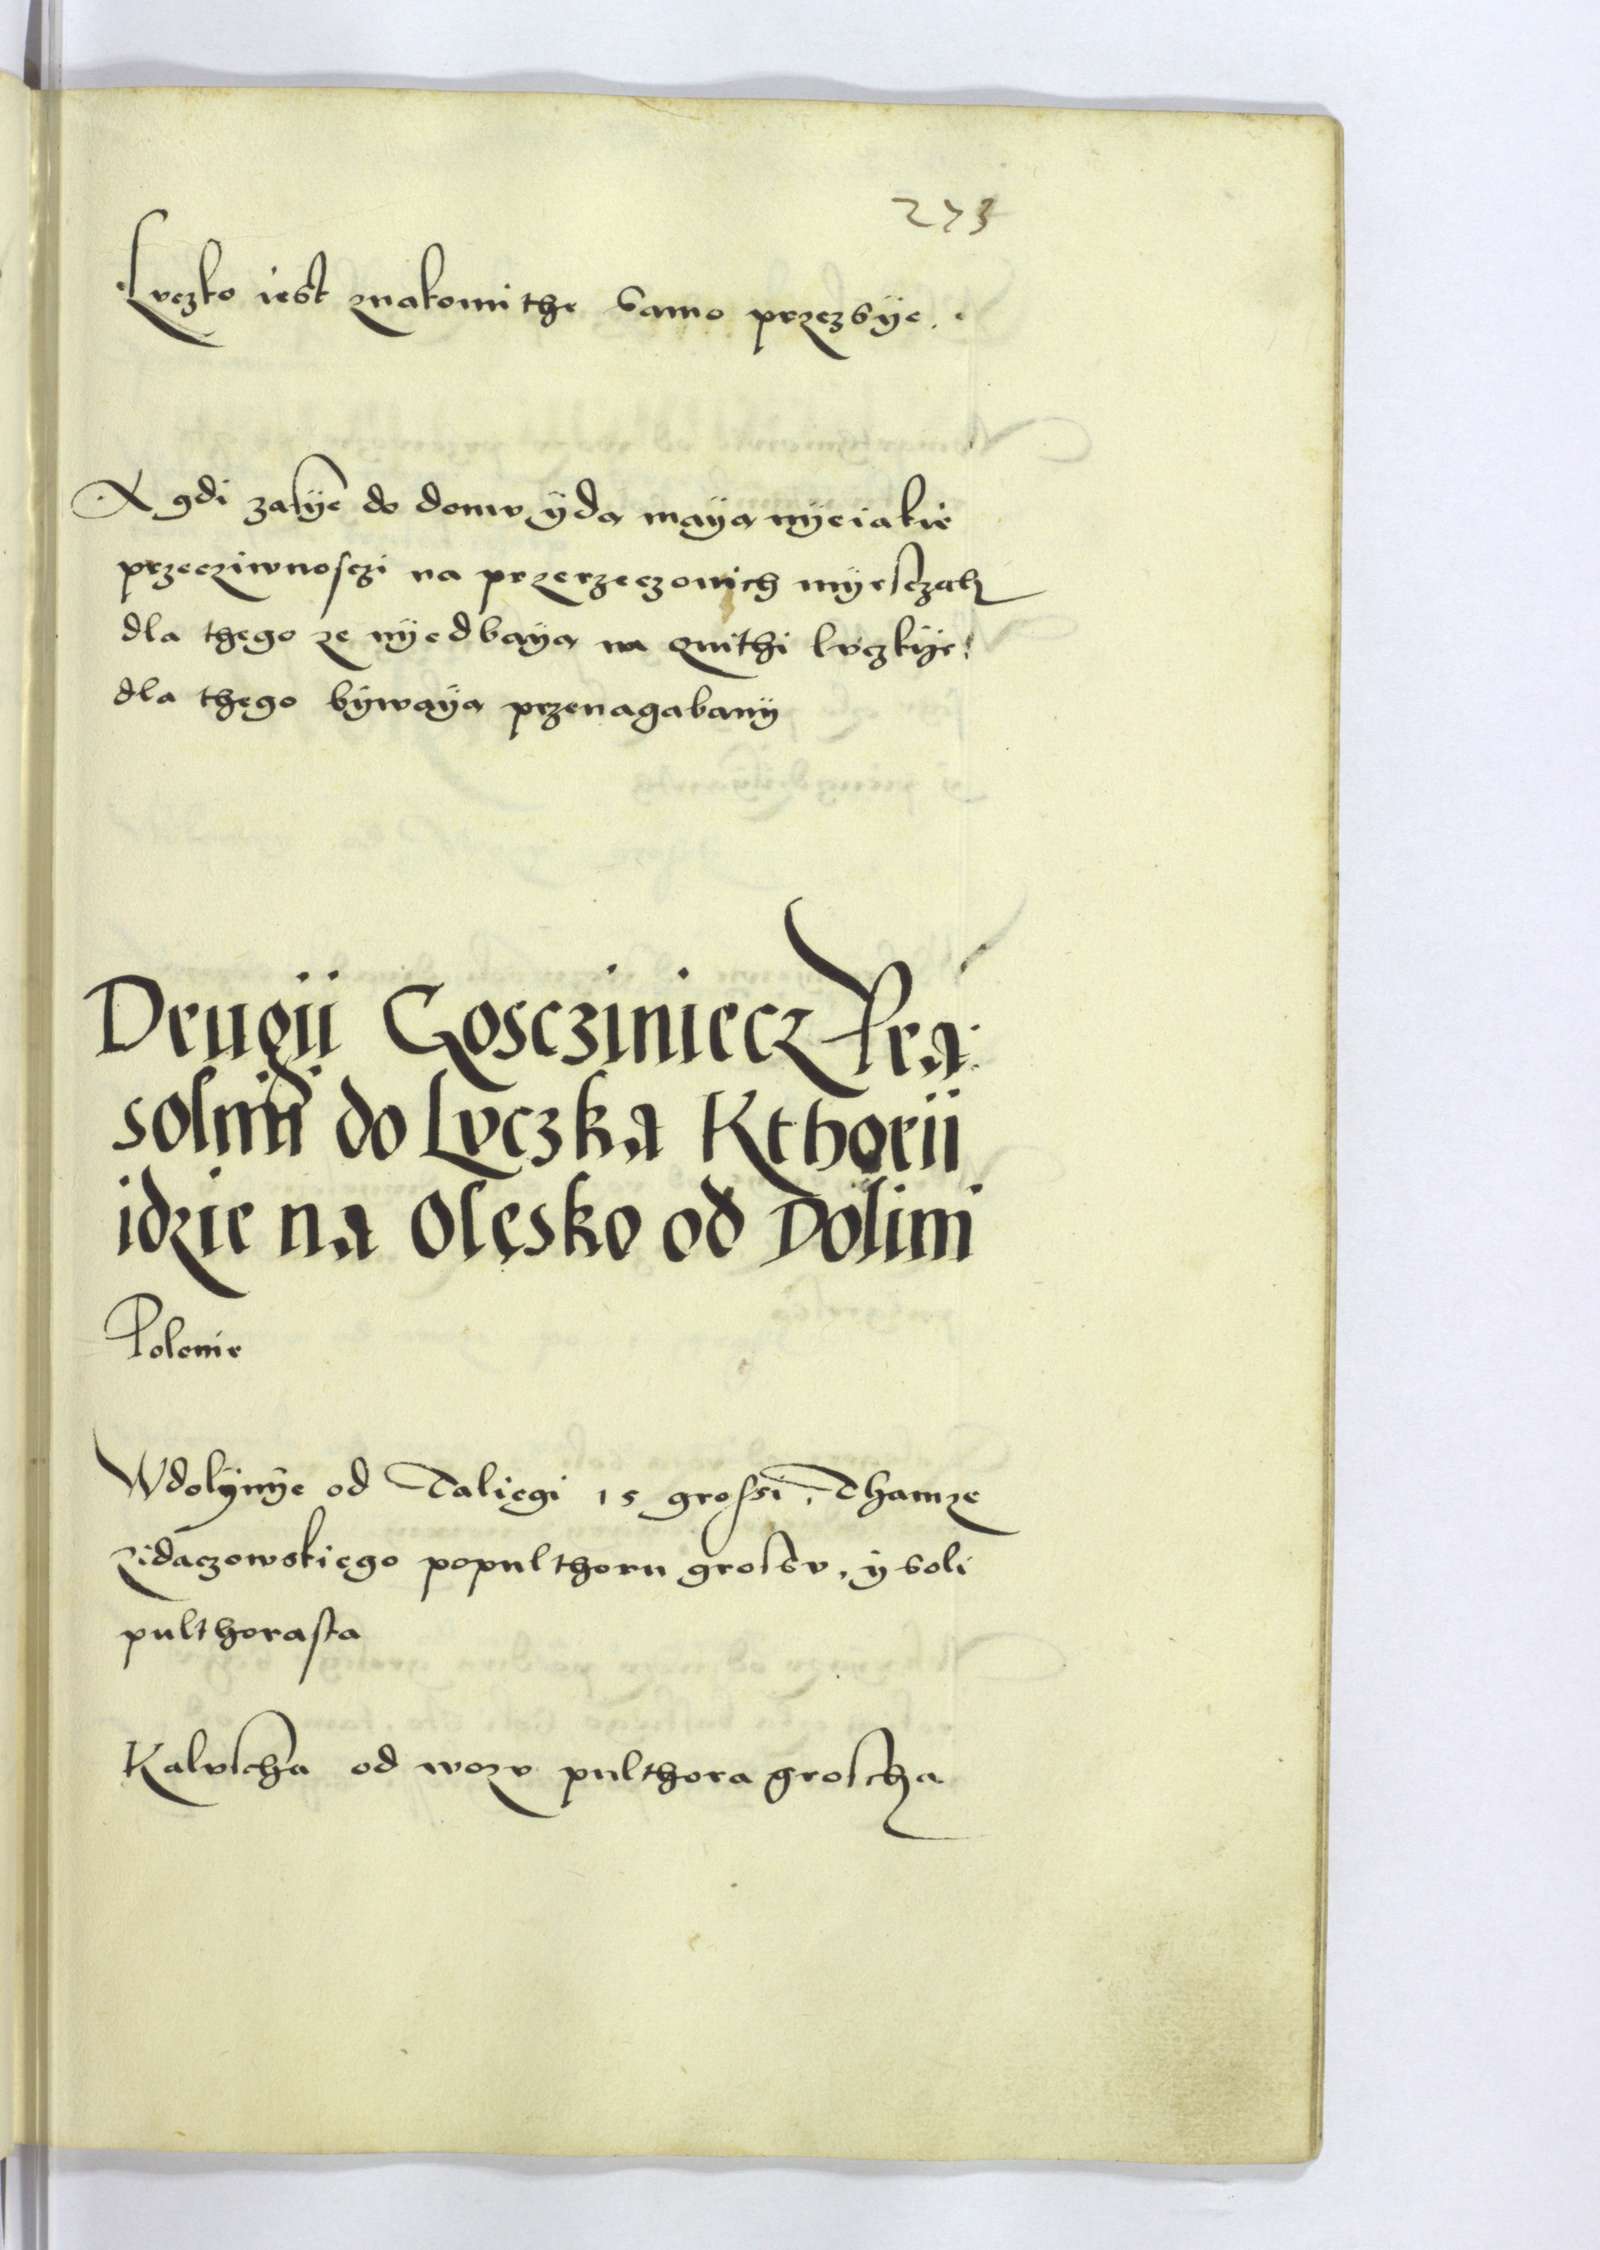 273
Luczko iest znakomithe samo przezsÿe.
A gdi zasÿe do domv ÿda maÿa nÿeiakie
przecziwnosczi na przerzeczonich mÿesczach
dla thego ze nÿedbaÿa na qvithi lvczkÿe:
dla thego bÿwaÿa przenagabanÿ
Drugii Goscziniecz Pra
solmi do Lvczka Kthorii
idzie na Olesko od Dolini
Polonie
Wdolÿnÿe od Taliegi 15 grossi, Thamze
Zidaczowskiego populthoru grossv, ÿ soli
pulthorasta
Kaluscha od wozv pulthora groscha